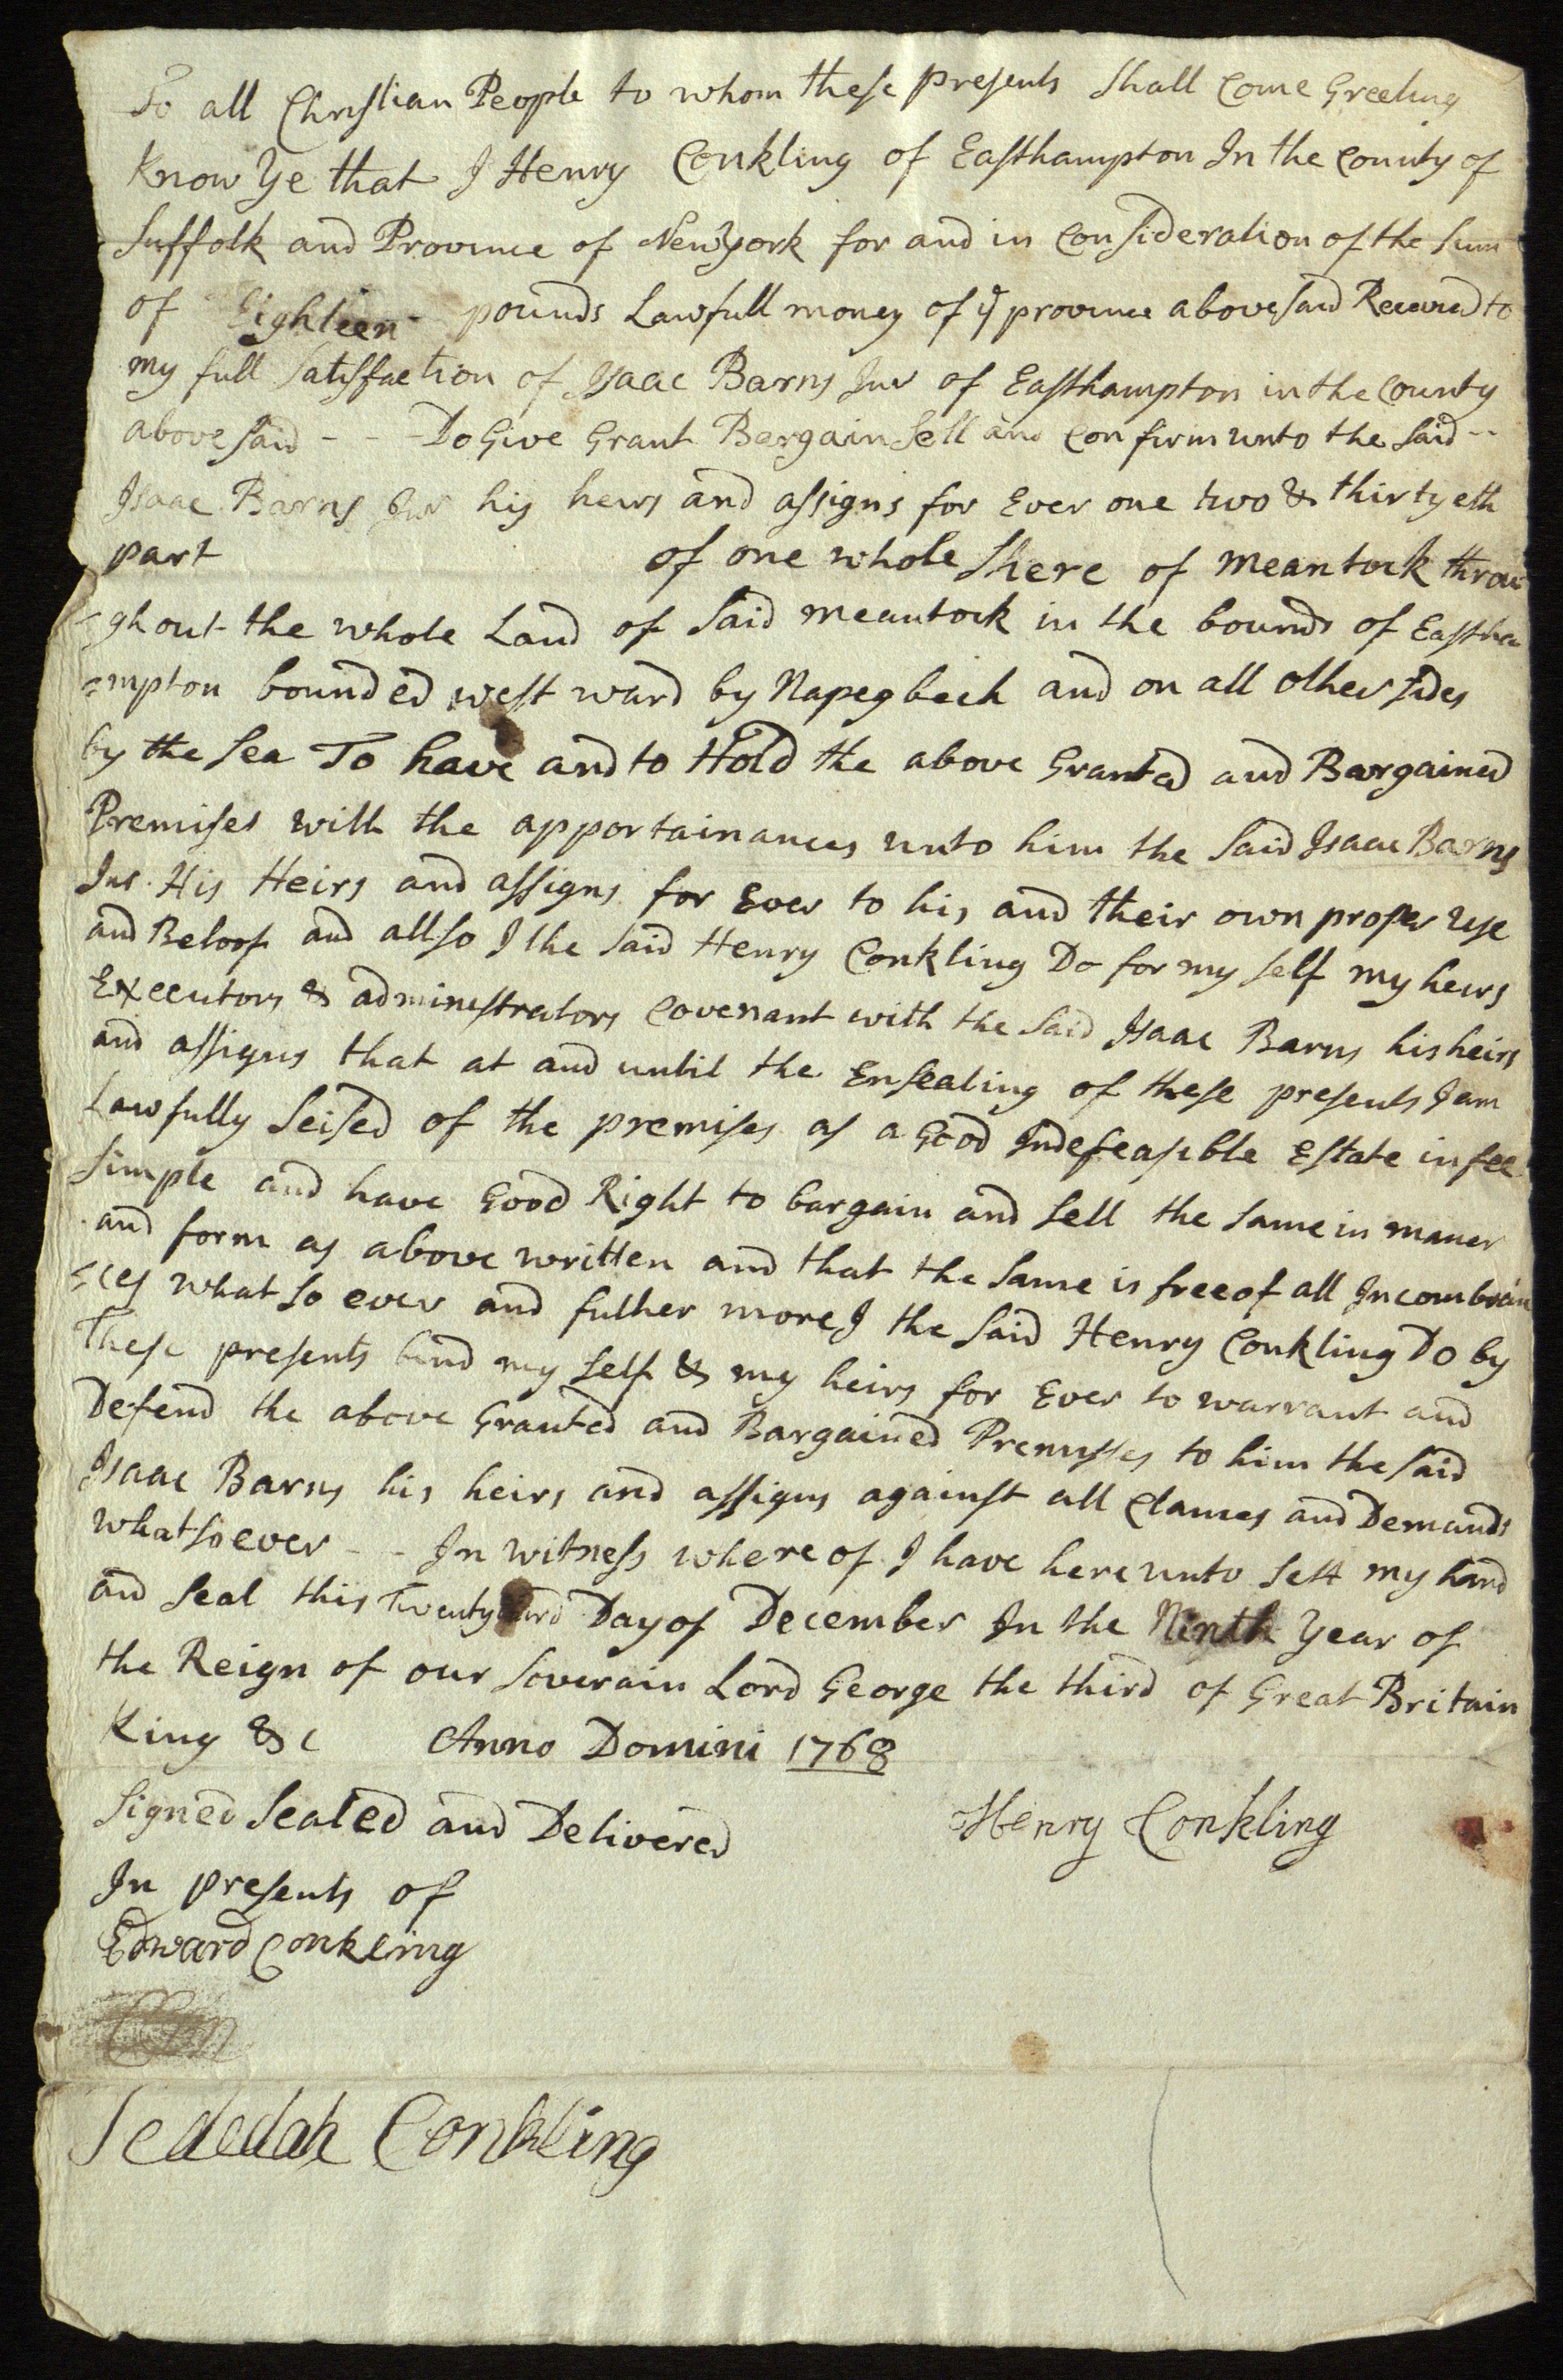 To all Christian People to whom these presents Shall Come Greeting
Know Ye that I Henry Conkling of Easthampton In the County of
Suffolk and Province of New York for and in Consideration of the Sum
of Eighteen - pounds Lawfull money of ye province above said Received to
my full Satisffaction of Isaac Barns Jur of Easthampton in the County
above said - - - Do Give Grant Bargain Sell and Confirm unto the said --
Isaac Barns Jur his heirs and assigns for Ever one two & thirtyeth
part of one whole Shere of meantock throu
=ghout the whole Land of Said meantock in the bounds of Eastha
=mpton bounded west ward by Napeg beech and on all other sides
by the Sea To have and to Hold the above Granted and Bargained
Premises with the apportainances unto him the Said Isaac Barns
Jur. His Heirs and assigns for Ever to his and their own proper use
and Beloof and allso I the Said Henry Conkling Do for my self my heirs
Executors & administrators Covenant with the Said Isaac Barns his heirs
and assigns that at and until the Ensealing of these presents I am
Lawfully Seised of the premises as a Good Indefeasible Estate in fee
Simple and have Good Right to bargain and Sell the Same in maner
and form as above written and that the Same is free of all Incombran
=ces what so ever and futher more I the Said Henry Conkling Do by
These presents bind my Self & my heirs for Ever to warrant and
Defend the above Granted and Bargained Premisses to him the said
Isaac Barns his heirs and assigns against all Clames and Demands
whatsoever - - In witness where of I have here unto Sett my hand
and Seal this Twenty third Day of December In the Ninth Year of
the Reign of our Soverain Lord George the third of Great Britain
King &c Anno Domini 1768
Signed Sealed and Delivered
Henry Conkling
In presents of
Edward Conkling
Jedediah Conkling